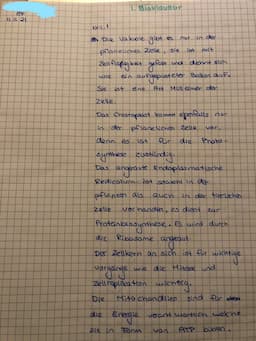 1. Bioklausur
11.11.21
Nr. 1
Die Vakuole gibt es nur in der
pflanzlichen Zelle, sie ist mit
Zellsaft gefüllt und dehnt sich
wie ein aufgepusteter Ballon aus.
Sie ist eine Art Mülleimer der
Zelle.
Das Chloroplast kommt ebenfalls nur
in der pflanzlichen Zelle vor,
denn es ist für die Photo-
synthese zuständig.
Das angeraute Endoplasmatische
Redicolum ist sowohl in der
pflanzen als auch in der tierischen
Zelle vorhanden, es dient zur
Proteinbiosynthese. Es wird durch
die Ribosome angeraut.
Der Zellkern an sich ist für wichtige
vorgänge wie die Mitose und
Zellreplikation wichtig.
Die Mitochondrien sind für
die Energie verantwortlich welche
sie in Form von ATP bilden.